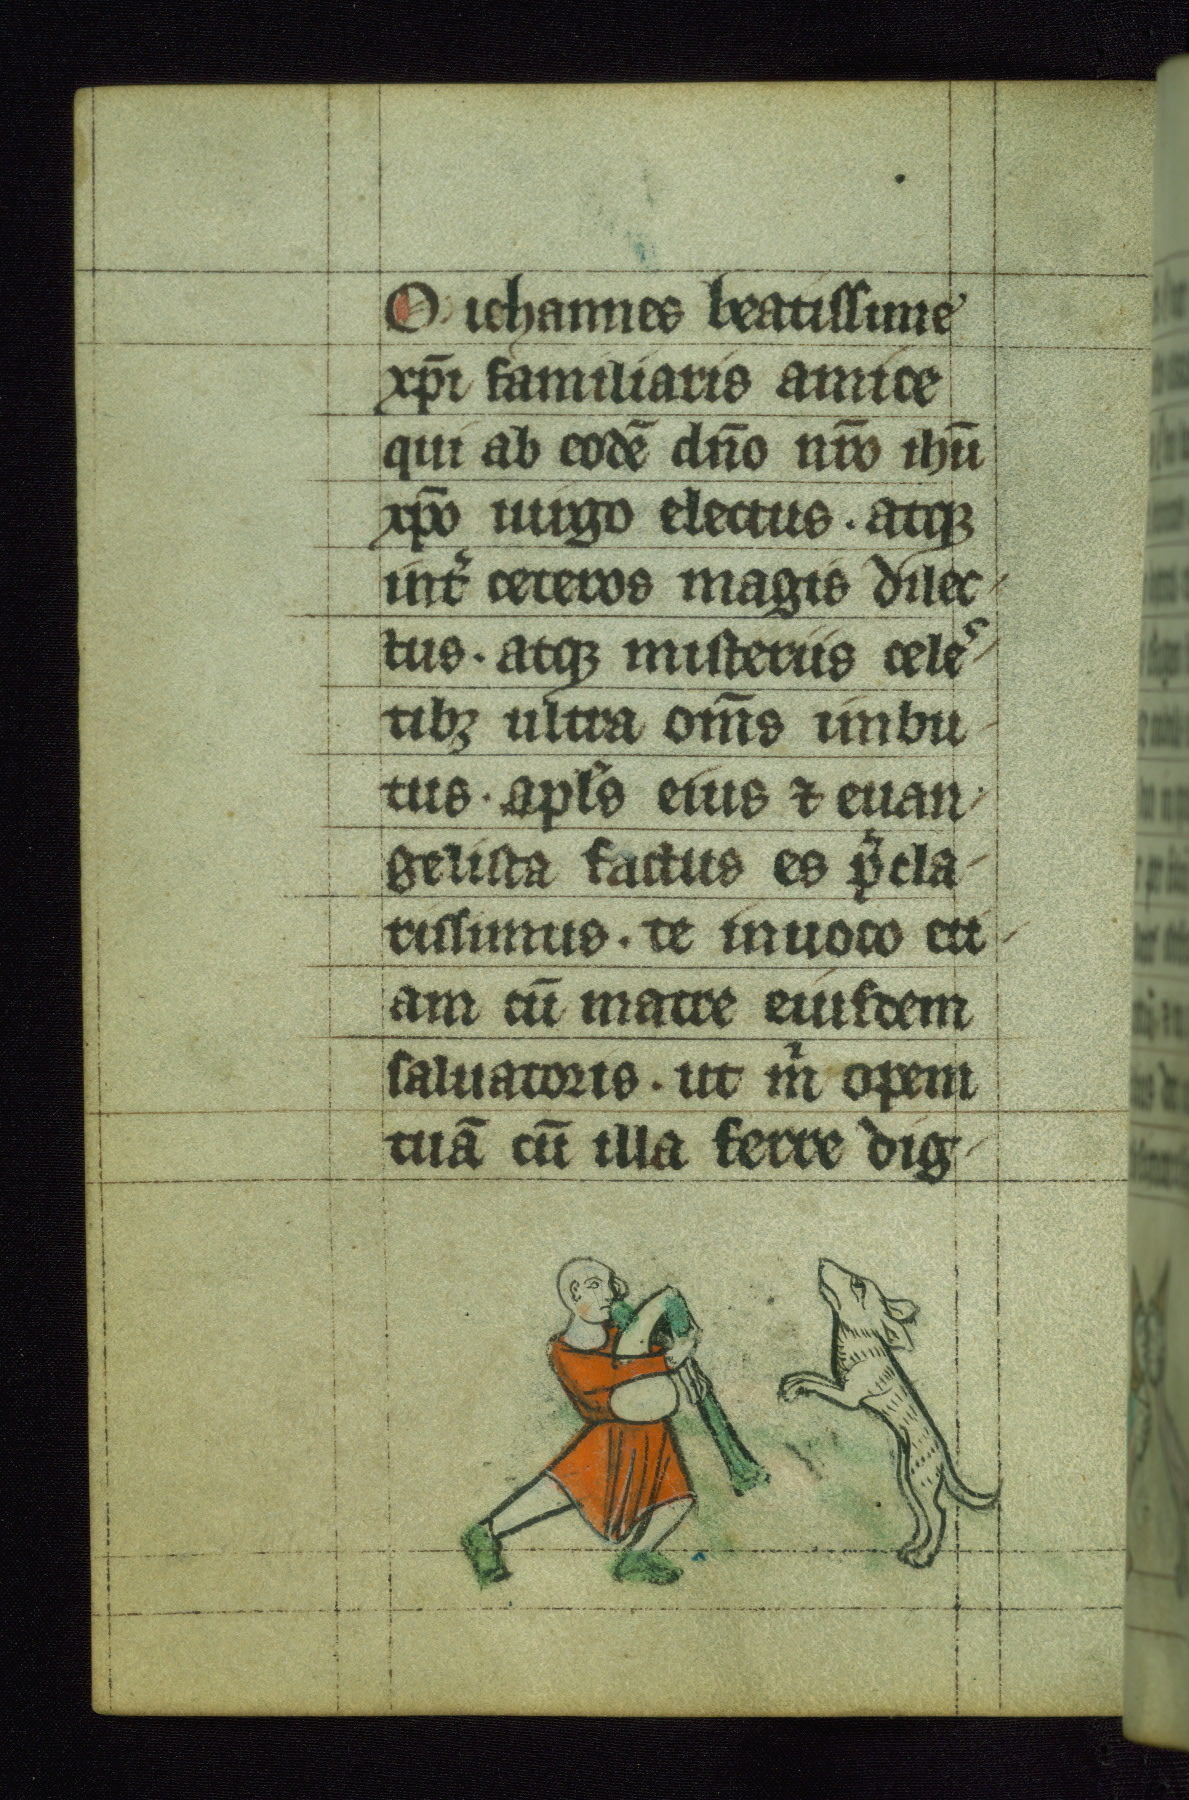 O iohannes beatissime
xp̄i familiaris amice
qui ab eodē dn̄o nr̄o ihū
xp̄o uirgo electus . atqꝫ
int̉ ceteros magis dilec
tus . atqꝫ misteriis celeˢ
tibꝫ ultra om̄s imbu
tus . apl̉s eius ⁊ euan
gelista factus es p̉cla
rissimus . te inuoco eti
am cū matre eiusdem
saluatoris . ut m̉ opem
tuā cū illa ferre dig